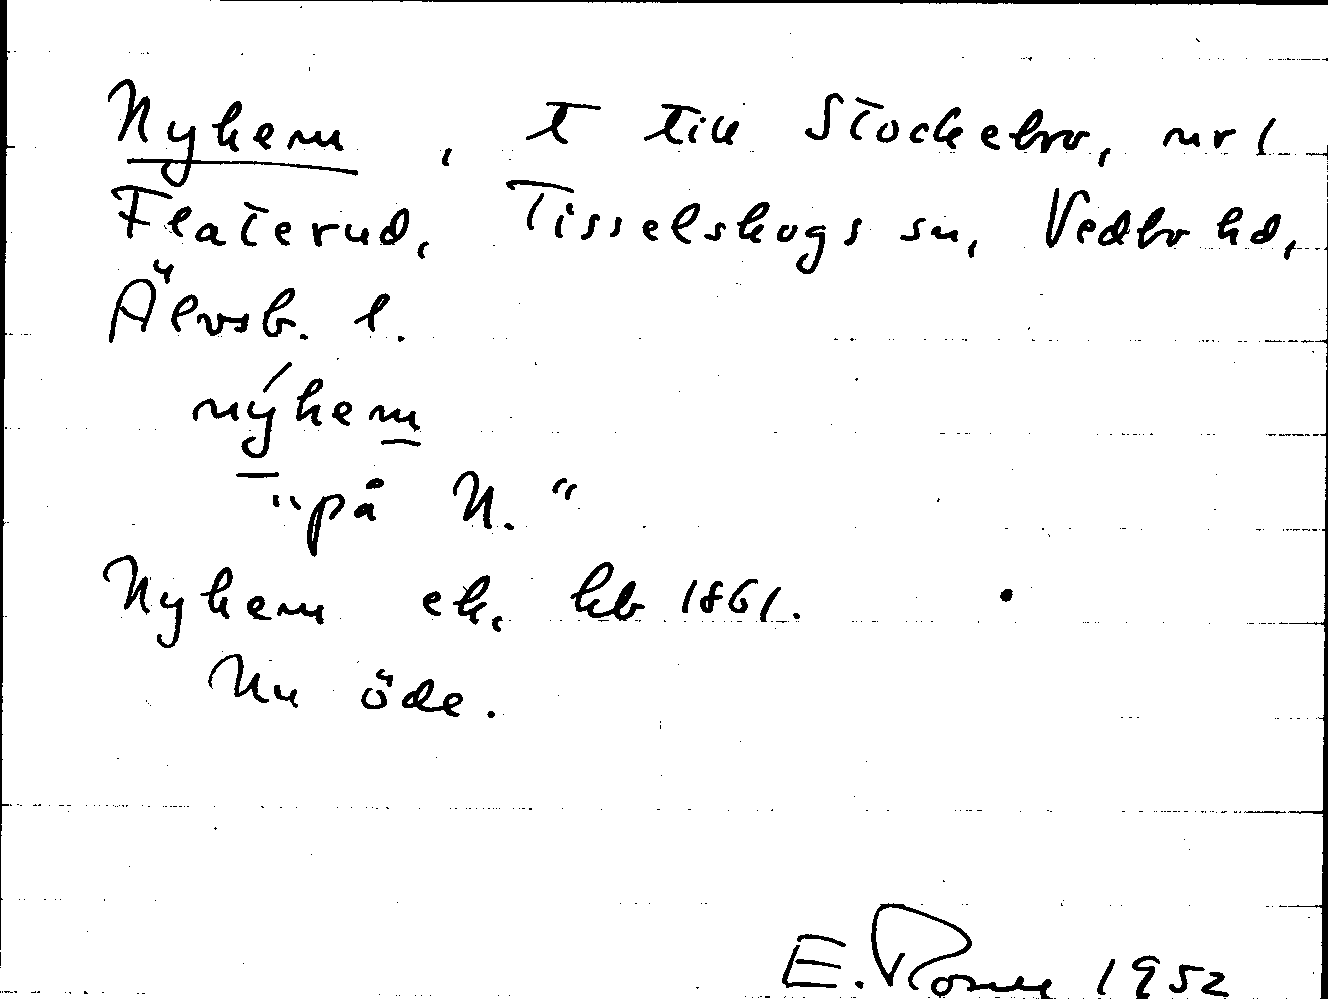 Nyhem, t till Stockebro, nr 1
Flaterud, Tisselskogs sn, Vedbo hd,
Älvsb. l.
nýhem
"på N."
Nyhem ek. kb 1861.
Nu öde.
E. 1952